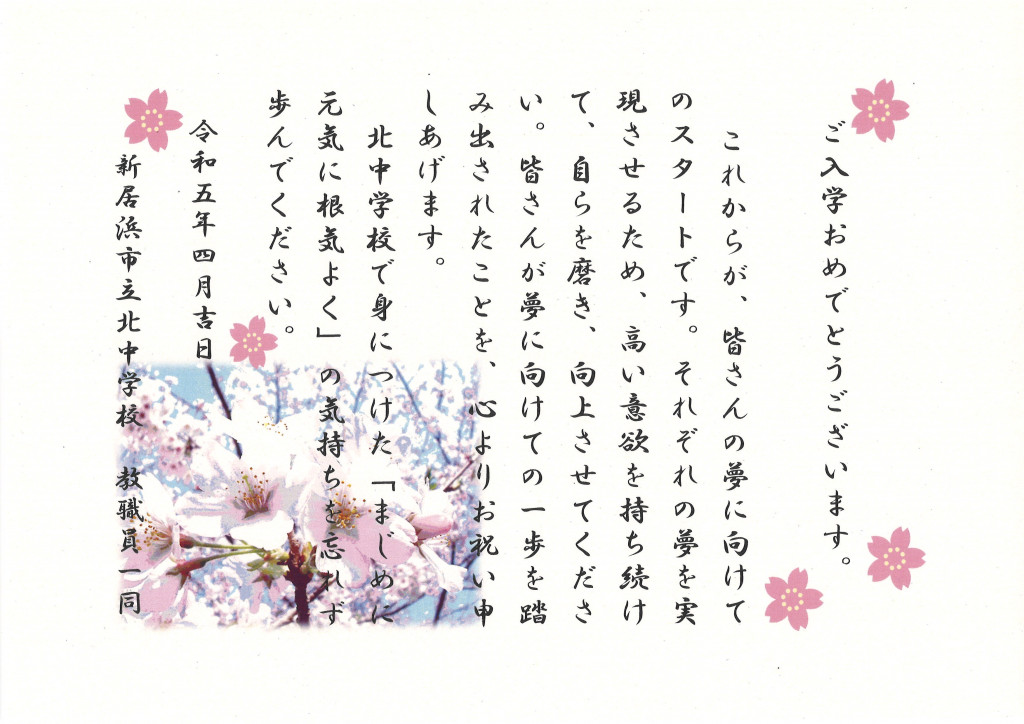 ご入学おめでとうございます。
これからが、皆さんの夢に向けて
のスタートです。それぞれの夢を実
現させるため、高い意欲を持ち続け
て、自らを磨き、向上させてくださ
い。皆さんが夢に向けての一歩を踏
み出されたことを、心よりお祝い申
しあげます。
北中学校で身につけた「まじめに
元気に根気よく」の気持ちを忘れず
歩んでください。
令和五年四月吉日
新居浜市立北中学校　教職員一同